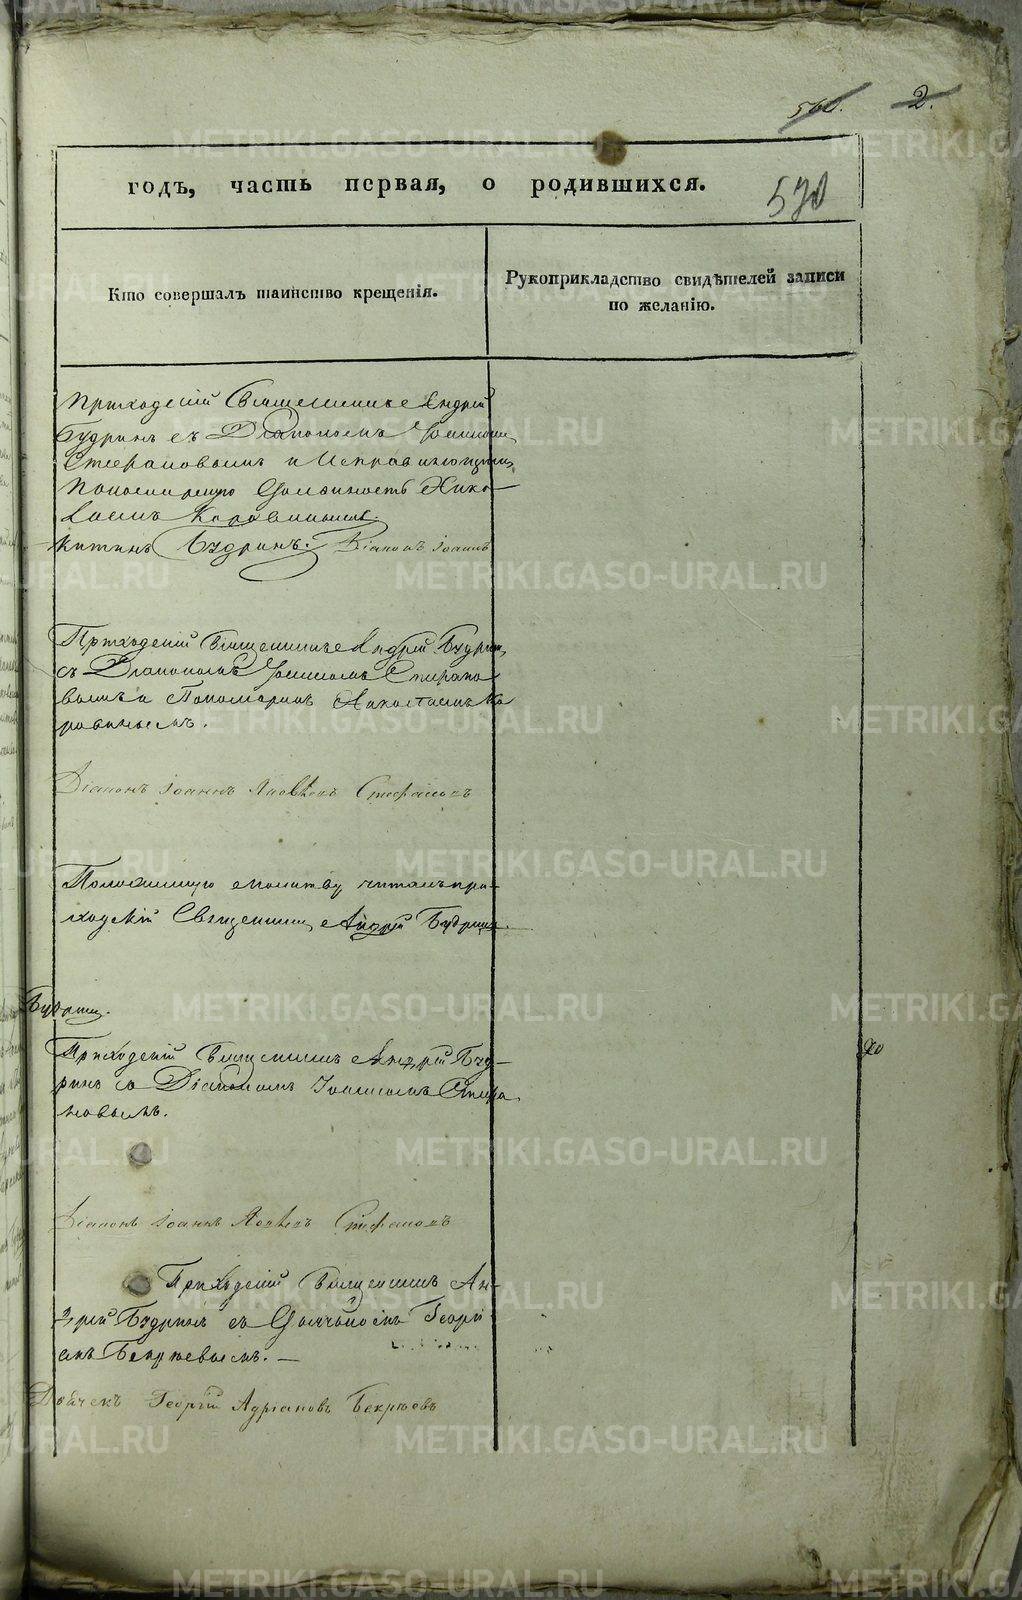 560. 2.
годъ, часть первая, о родившихся.
570
Кто совершалъ таинство крещенія.
Рукоприкладство свидѣтелей записи
по желанію.
Приходскій Священникъ Андрей
Будринъ съ Діакономъ Іоанномъ
Стефановымъ и Исправляющимъ
Пономарскую Должность Нико-
лаемъ Коровинымъ.
Будринъ. Діаконъ Іоаннъ
Приходскій Священникъ Андрей Будринъ
съ Діакономъ Іоанномъ Стефано
вымъ и Пономаремъ Ко
ровинымъ.
Діаконъ Іоаннъ Яковлевъ Стефановъ
молитву читалъ при-
ходскій Священникъ Андрей Будринъ.
Будринъ.
Приходскій Священникъ Андрей Буд-
ринъ со Діакономъ Іоанномъ Стефа
новымъ.
Діаконъ Іоаннъ Яковлевъ Стефановъ
Приходскій Священникъ Ан-
дрей Будринъ съ Дьячкомъ Георгі
емъ Бекряевымъ. —
Дьячекъ Георгій Адріановъ Бекряевъ
METRIKI.GASO-URAL.RU